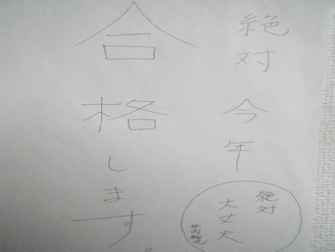 絶対今年
合格します。
絶対
大丈夫